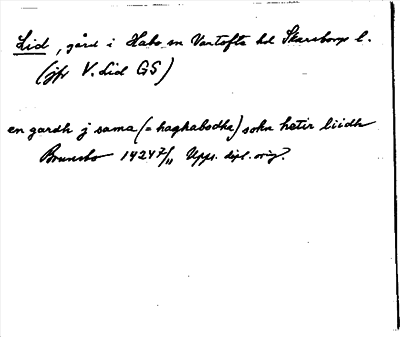 Lid, gård i Habo sn Vartofta hd Skaraborgs l.
(jfr V. Lid GS)
en gardh j sama (= haghabodha) sokn hetir liidh
Brunsbo 1424 7/11 Upps. dipl. orig?